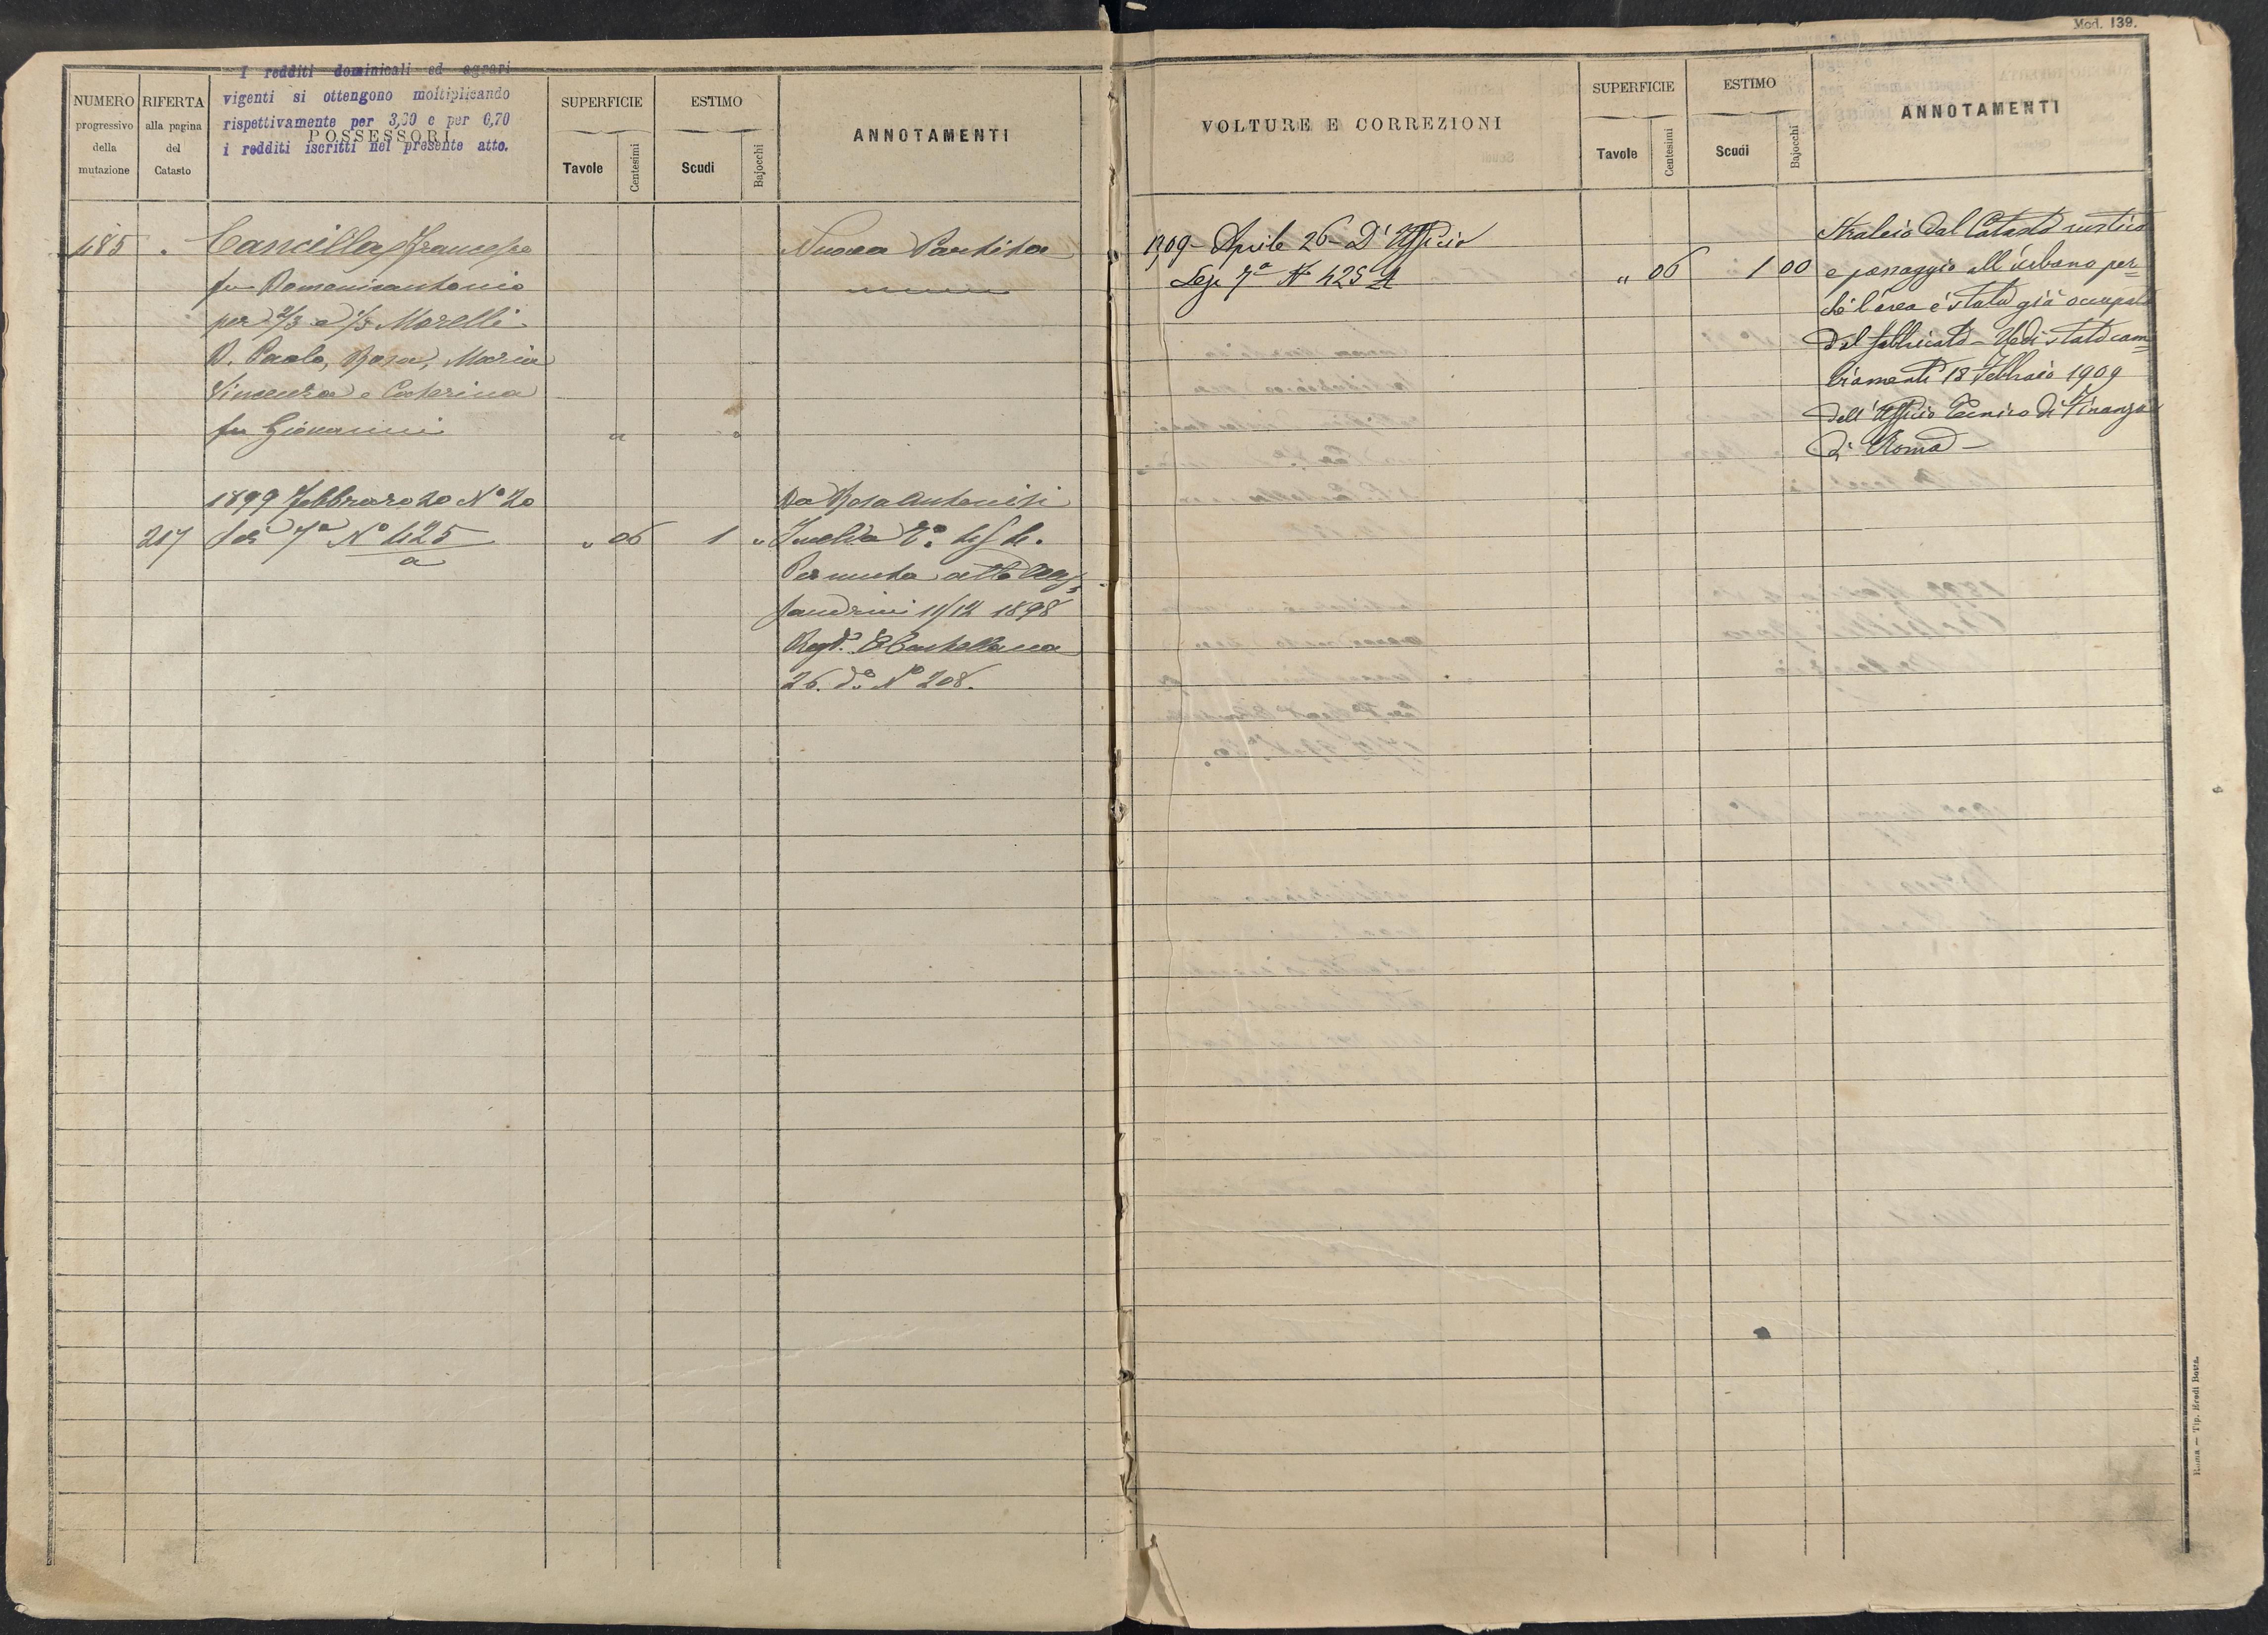 I redditi dominicali ed agrari
vigenti si ottengono moltiplicando
rispettivamente per 3,30 e per 6,70
i redditi iscritti nel presente atto.
NUMERO progressivo della mutazione
RIFERTA alla pagina del Catasto
POSSESSORI
SUPERFICIE
Tavole
Centesimi
ESTIMO
Scudi
Bajocchi
ANNOTAMENTI
485 Cancilla Francesco Nuova Partita
fu Domenicantonio
per 2/3 e 1/3 Morelli
D. Paolo, Rosa, Maria
Vincenza e Caterina
fu Giovanni " "
1899 Febbraro 20 N° 20 Da Rosa Antonisi
217 Sez 7a N° 425 " 06 1 "
a
Permuta atto
sandrini 11/12 1898
Regt.° CCastellana
26. d.° N° 208.
Mod. 139.
VOLTURE E CORREZIONI
SUPERFICIE
Tavole
Centesimi
ESTIMO
Scudi
Bajocchi
ANNOTAMENTI
1909 - Aprile 26 - D'Ufficio Stralcio dal Catasto rustico
Sez 7a N° 425 A " 06 1 00 e passaggio all'urbano per=
chè l'area è stata già occupata
dal fabbricato - Vedi stato cam=
biamenti 18 Febbraio 1909
dell'Ufficio Tecnico di Finanza
di Roma -
Roma — Tip. Eredi Botta.